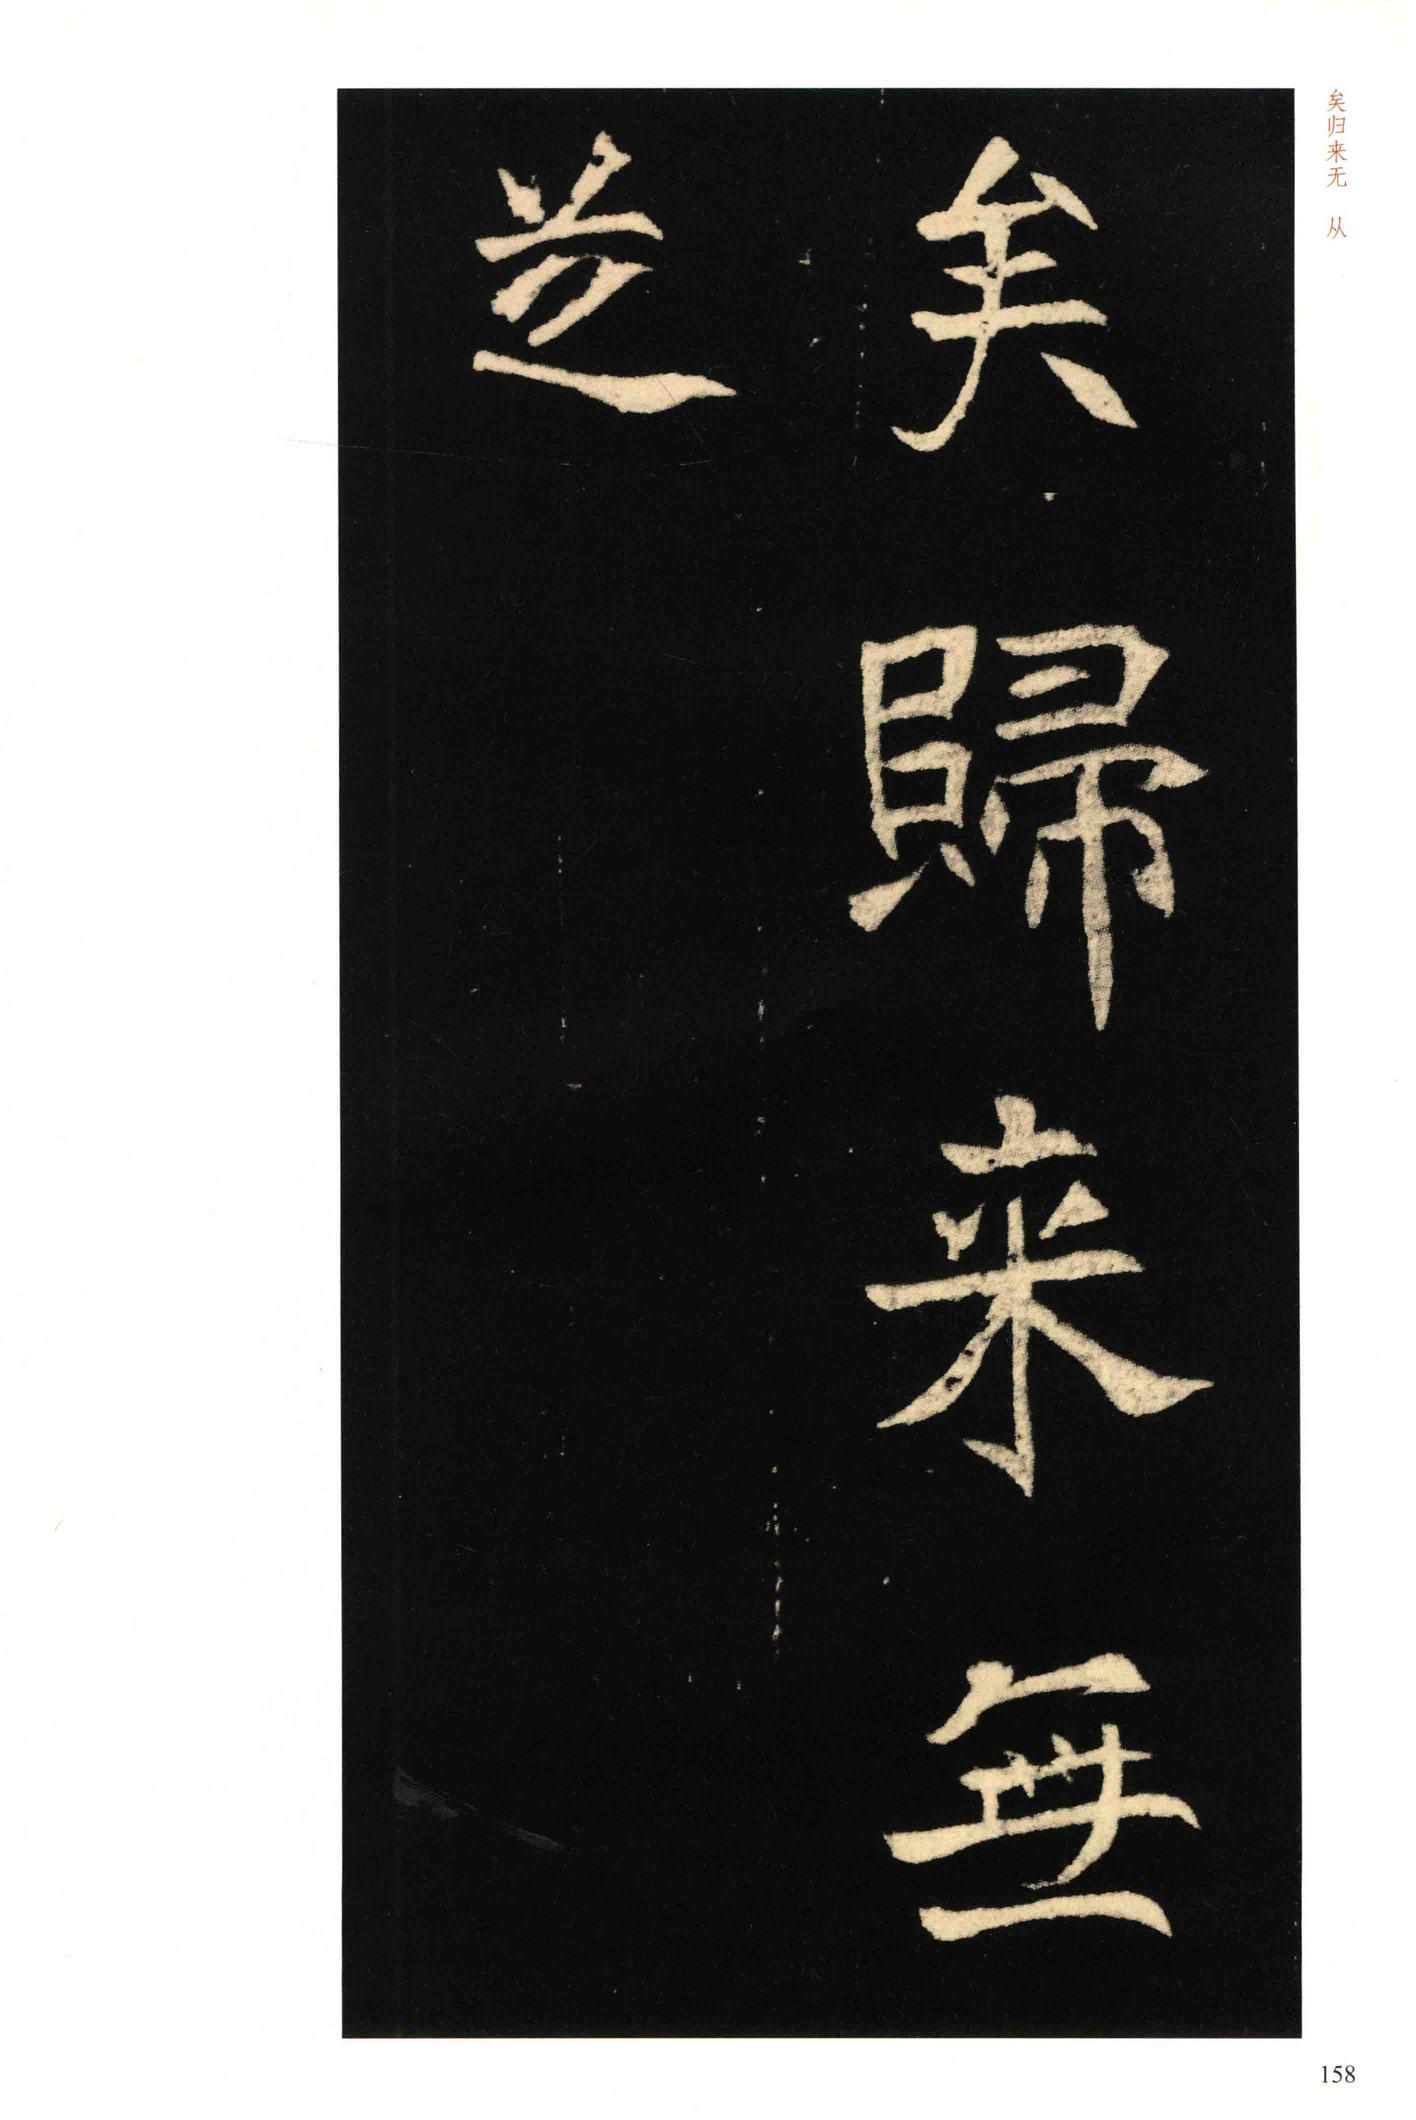 矣归来无 从
矣歸来無
158